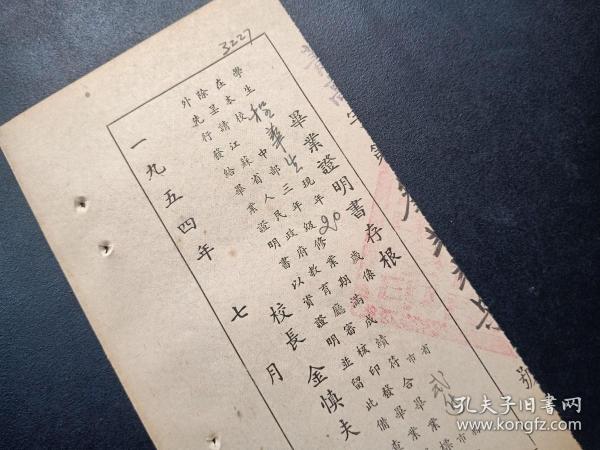 3227
字第
號
畢業證明書存根
學生程華生現年20歲係省市
在本校中部三年級修業期滿成績符合畢業標
除呈請江蘇省人民政府教育廳審核印發畢業
外先行發給畢業證明書以資證明並留此備查
校長 金慎夫
一九五四年 七月
孔夫子旧書网
www.kongfz.com